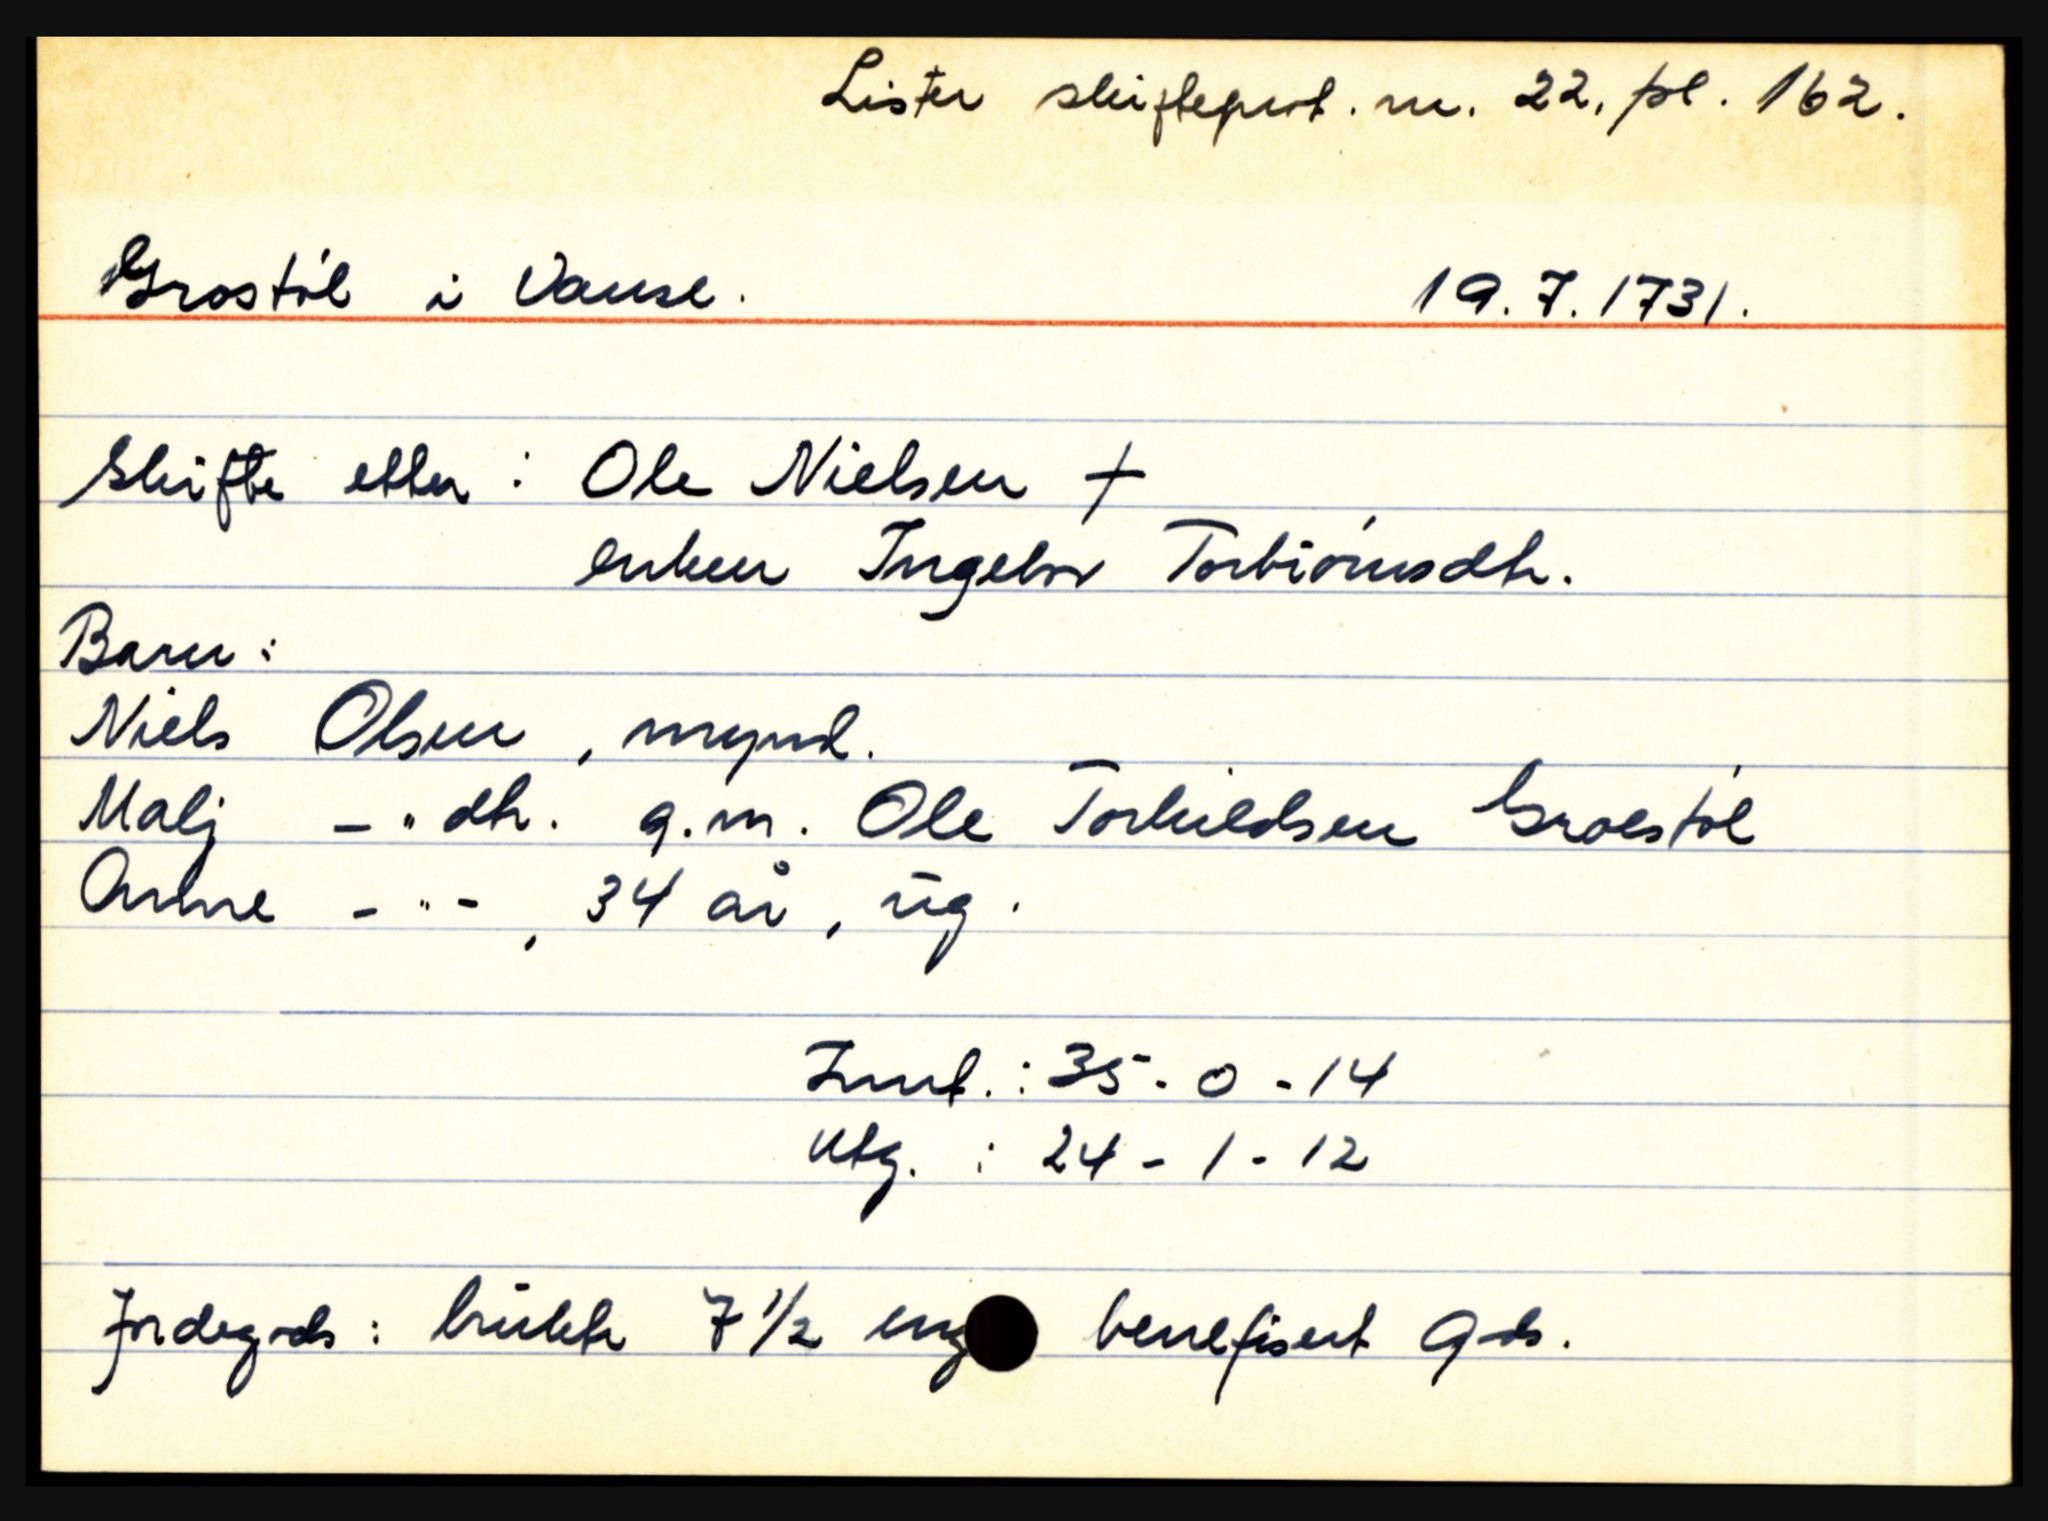 Lister skifteprot. nr. 22, pl. 162.
Grostól i Vanse. 19.7.1731.
Skifte etter: Ole Nielsen †
enken Ingebor Torbiórnsdtr.
Barn:
Niels Olsen, mynd.
Malj -"- dtr. g.m. Ole Torkildsen Groestól
Anne -"-, 34 år, ūg.
Innt.: 35-0-14
Utg.: 24-1-12
Jordegods: brūkte 7 1/2 eng benefisert gds.